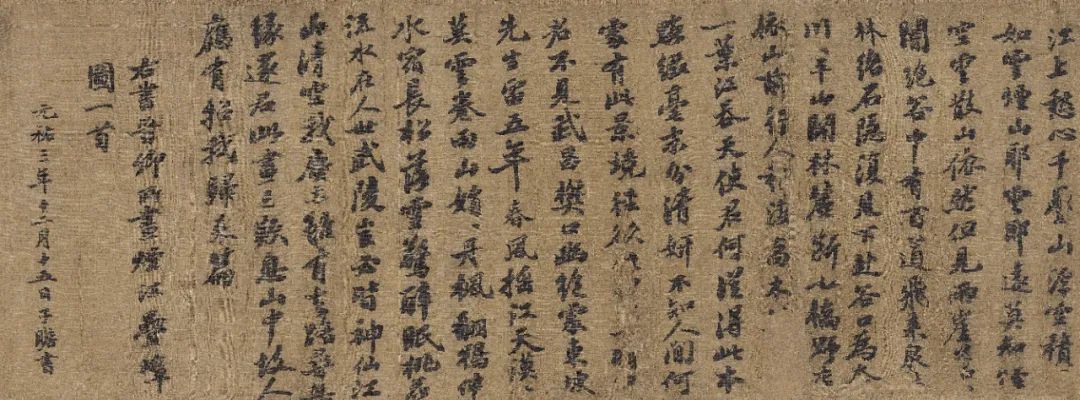 江上愁心千疊山浮空積
如雲煙山耶雲耶遠莫知煙
空雲散山依然但見兩崖蒼蒼
闇絕谷中有百道飛來泉
林絡石隱復見下赴谷口為奔
川川平山開林麓斷小橋野店
依山前行人稍渡喬木
一葉江吞天使君何從得此本
點綴毫末分清妍不知人間何
處有此景境徑欲
君不見武昌樊口幽絕處東坡
先生留五年春風搖江天漠漠
莫雲卷雨山娟娟丹楓翻鴉伴
水宿長松落雪驚醉眠桃花
流水在人世武陵豈必皆神仙江
山清空我塵土雖有去路尋無
緣還君此畫三歎息山中故人
應有招我歸來篇
右書晉卿所畫煙江疊嶂
圖一首
元祐三年十二月十五日子瞻書